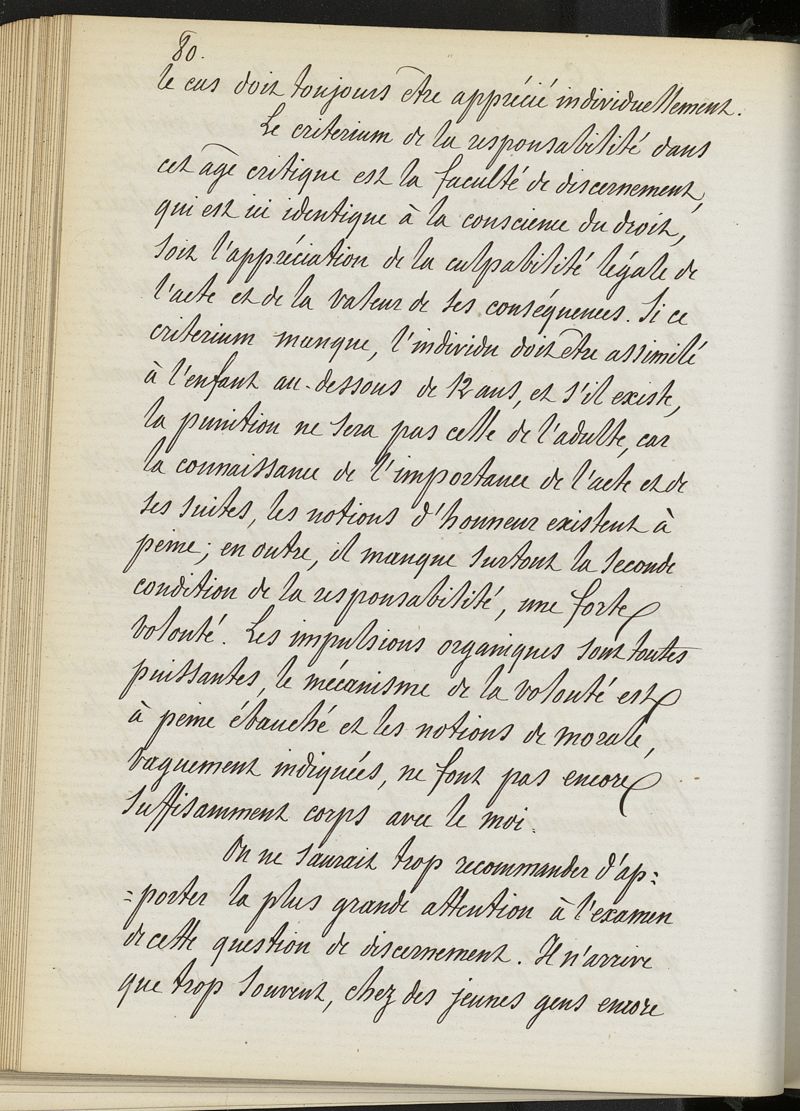 80.
le cas doit toujours être apprécié individuellement.
Le criterium de la responsabilité dans
cet âge critique est la faculté de discernement,
qui est ici identique à la conscience du droit,
soit l'appréciation de la culpabilité légale de
l'acte et de la valeur de ses conséquences. Si ce
criterium manque, l'individu doit être assimilé
à l'enfant au-dessous de 12 ans, et s'il existe,
la punition ne sera pas celle de l'adulte, car
la connaissance de l'importance de l'acte et de
ses suites, les notions d'honneur existent à
peine; en outre, il manque surtout la seconde
condition de la responsabilité, une forte
volonté. Les impulsions organiques sont toutes
puissantes, le mécanisme de la volonté est
à peine ébauché et les notions de morale,
vaguement indiquées, ne font pas encore
suffisamment corps avec le moi.
On ne saurait trop recommander d'ap=
=porter la plus grande attention à l'examen
de cette question de discernement. Il n'arrive
que trop souvent, chez des jeunes gens encore